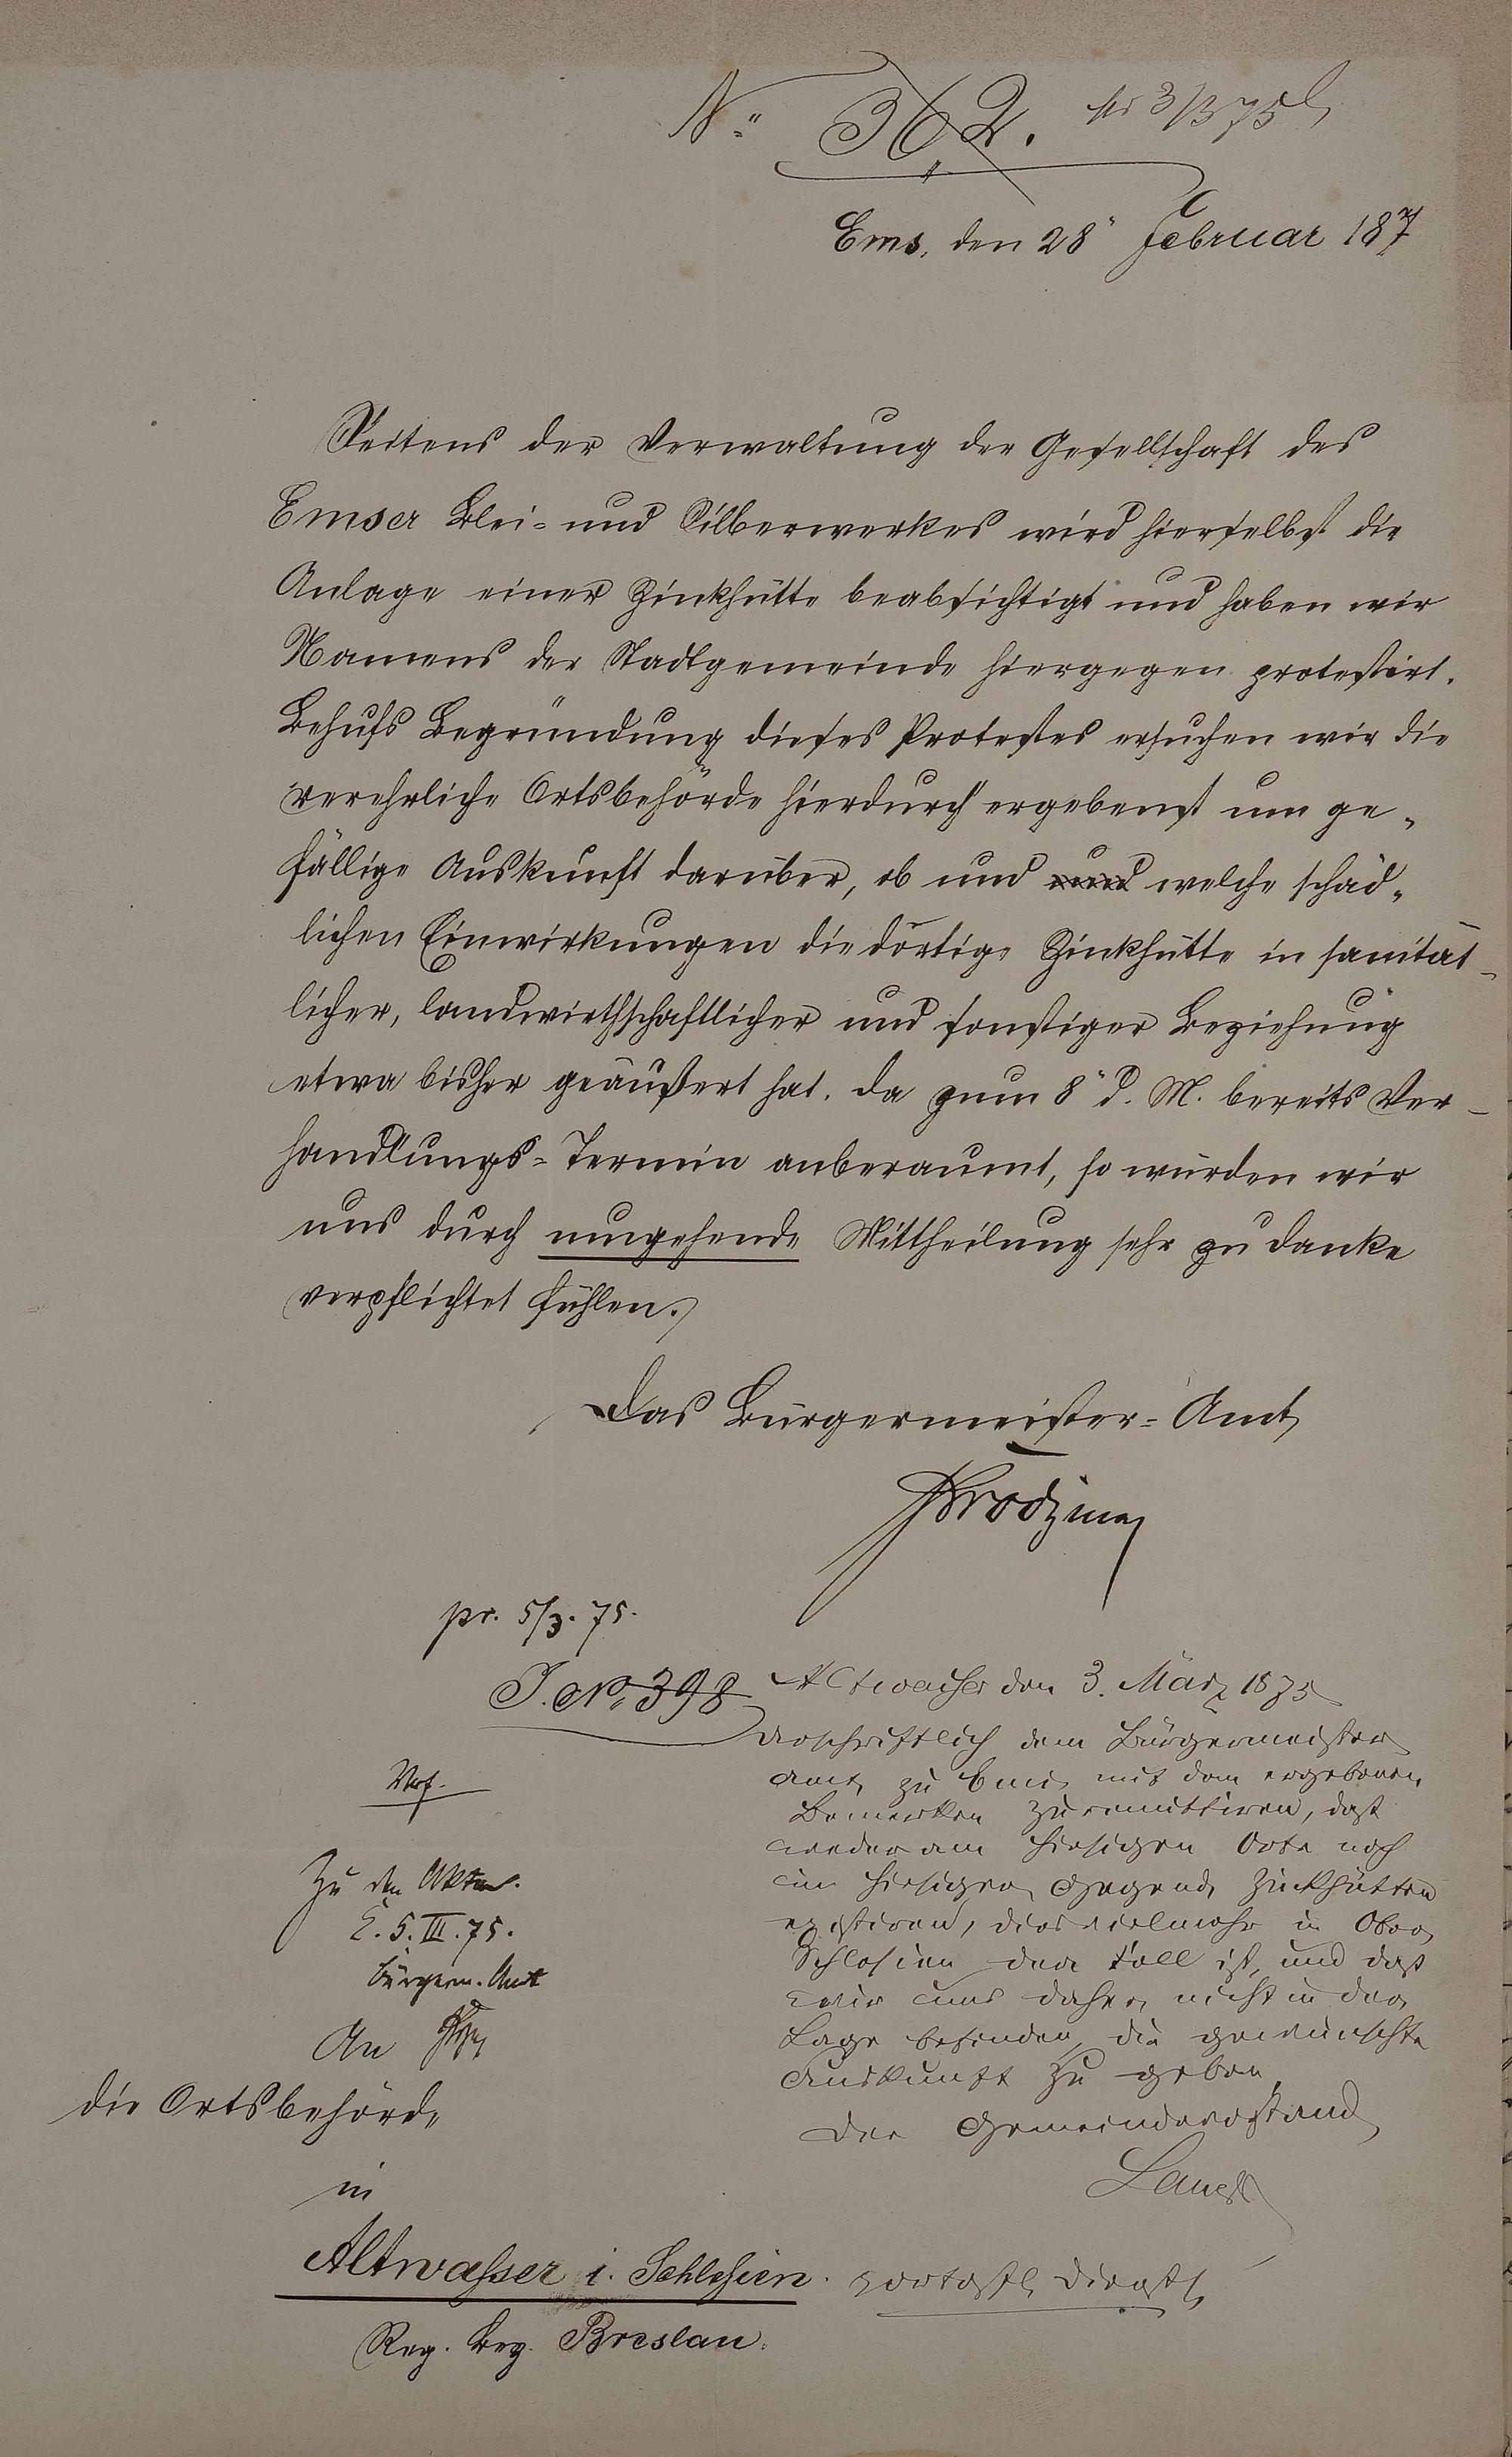 No. 362. pr 3/3 75
Ems, den 28" Februar 187
Seitens der Verwaltung der Gesellschaft des
Emser Blei- und Silberwerkes wird hierselbst die
Anlage einer Zinkhütte beabsichtigt und haben wir
Namens der Stadtgemeinde hiergegen protestirt.
Behufs Begründung dieses Protestes ersuchen wir die
verehrliche Ortsbehörde hierdurch ergebenst um ge-
fällige Auskunft darüber, ob und welche schäd-
lichen Einwirkungen die dortige Zinkhütte in sanität-
licher, landwirthschaftlicher und sonstiger Beziehung
etwa bisher geäußert hat. Da zum 8" d. M. bereits Ver-
handlungs-Termin anberaumt, so würden wir
uns durch umgehende Mittheilung sehr zu Danke
verpflichtet fühlen.
Das Bürgermeister-Amt
pr. 5/3. 75.
J. No. 398
Altwasser den 3. März 1875
urschriftlich dem Bürgermeister
Amt zu Ems mit dem ergebenen
Bemerken zu remittiren, daß
weder am hiesigen Orte noch
in hiesiger Gegend Zinkhütten
existiren, dies vielmehr in Ober
Schlesien der Fall ist, und daß
wir uns daher nicht in der
Lage befinden, die gewünschte
Auskunft zu geben
Der Gemeindevorstand
Vrf.
Zu den Akten.
E. 5. III. 75.
Bürgerm. Amt
An
die Ortsbehörde
in
Altwasser i. Schlesien.
Reg. Bez. Breslau.